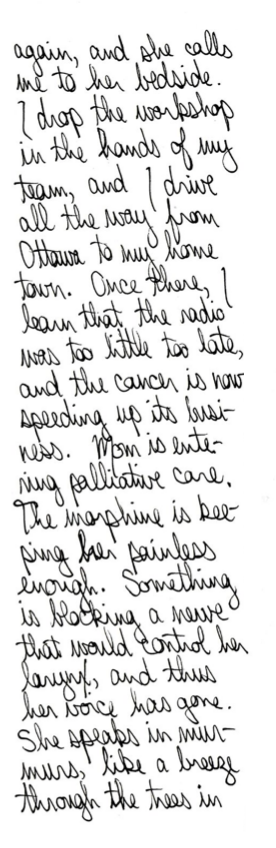 again, and she calls
me to her bedside.
I drop the workshop
in the hands of my
team, and I drive
all the way from
Ottawa to my home
town. Once there, I
learn that the radio
was too little too late,
and the cancer is now
speeding up its busi-
ness. Mom is ente-
ring palliative care.
The morphine is kee-
ping her painless
enough. Something
is blocking a nerve
that would control her
larynx, and thus
her voice has gone.
She speaks in mur-
murs, like a breeze
through the trees in